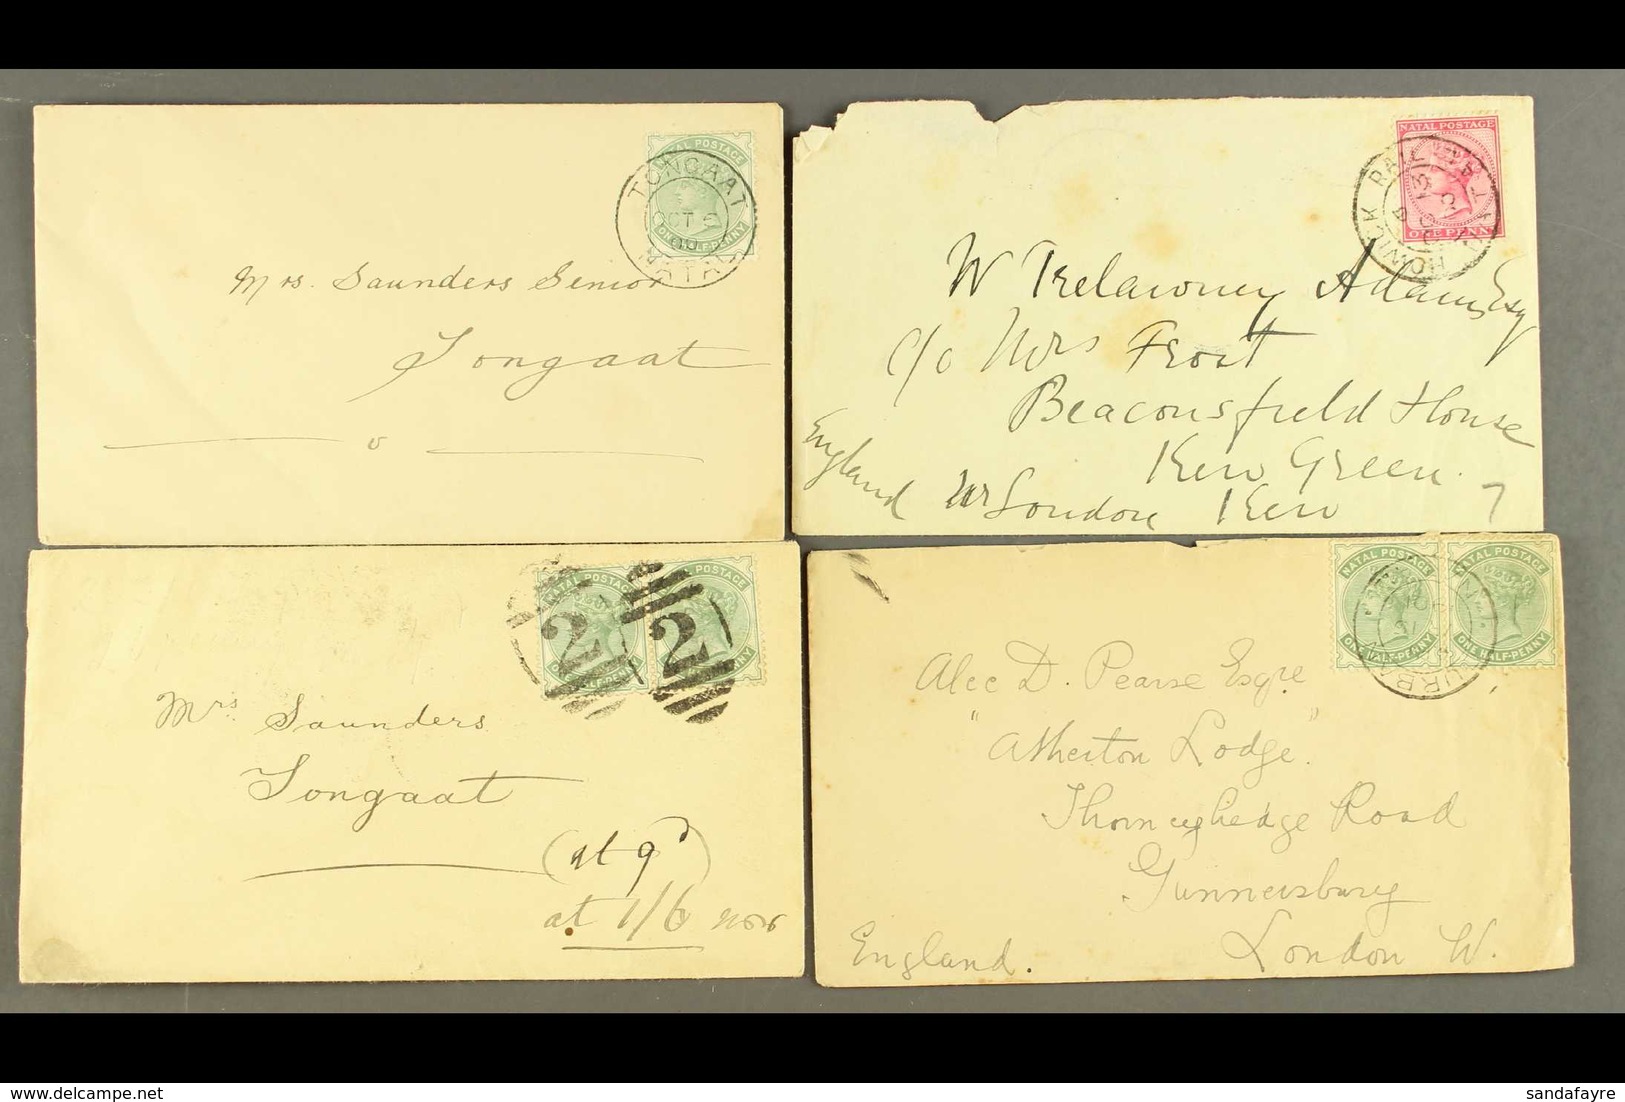 NATAL POSTAGE
ONE HALF-PENNY
TONGAAT
OCT 6
NATAL
Mrs. Saunders Senior
Tongaat
NATAL POSTAGE
ONE PENNY
HOWICK RAIL
W Trelawney Adams Esq
c/o Mrs Frost
Beaconsfield House
Kew Green
nr London Kew
England
7
NATAL POSTAGE
ONE HALF-PENNY
NATAL POSTAGE
ONE HALF-PENNY
2
2
Mrs Saunders
Tongaat
(at 9d)
at 1/6 now
NATAL POSTAGE
ONE HALF-PENNY
NATAL POSTAGE
ONE HALF-PENNY
Alec D. Pearse Esqre
"Atherton Lodge"
Thorneyhedge Road
Gunnersbury
London W.
England.
www.delcampe.net
sandafayre